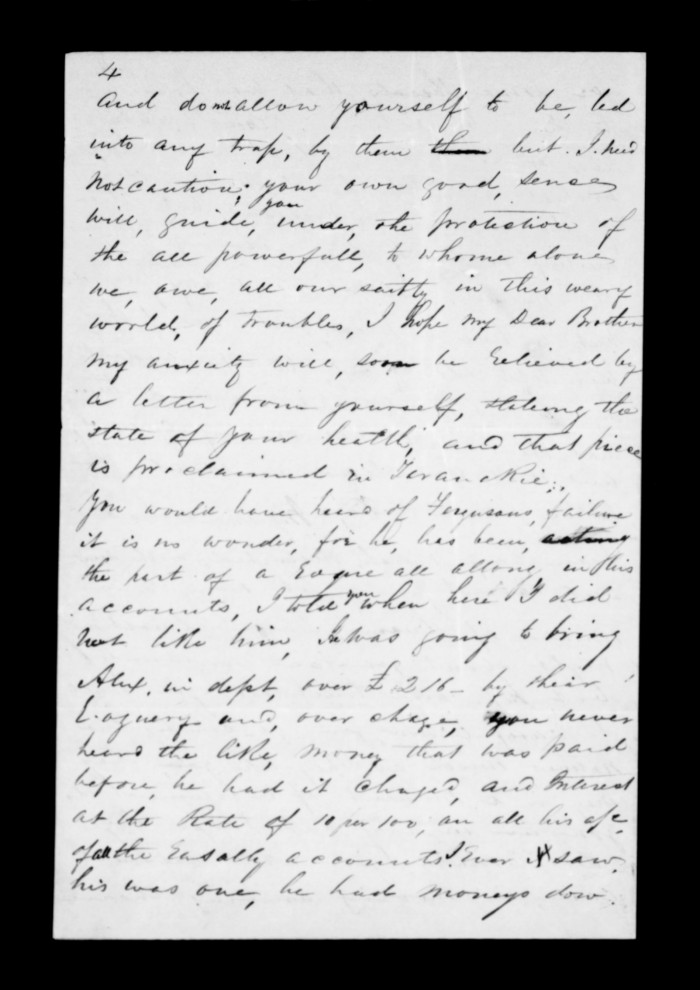 4
and do not allow yourself to be, led
into any trap, by them them but. I. need
Not caution; your own good, senses
will, guide, you under, the protection of
the all powerfull, to whome alone
we, owe, all our saifty in this weary
world, of troubles, I hope my Dear Brother
my anxiety will, soon be Relieved by
a letter from yourself, stateing the
state of your health, and that piece
is proclaimed in Taranakie;.
you would have heard of Fergusons, failure
it is no wonder, for he, has been, acting
the part of a Rogue all allong, in this
accounts, I told you when here I did
not like him, he was going to bring
Alex, in dept, over £216- by their
Roguery and, over chage, you never
heard the like, money that was paid
before, he had it chaged, and Interest
at the Rate of 10 per 100, on all his a/c,
of all the Rasally accounts I Ever saw,
his was one, he had moneys dow.